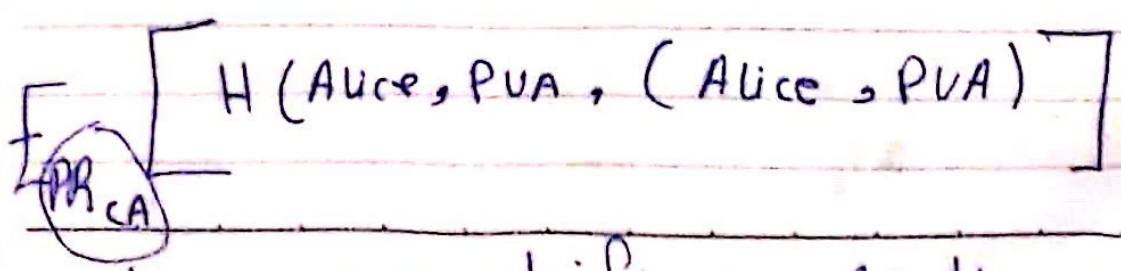 E PR_CA [ H ( Alice , PUA , ( Alice , PUA ) ]